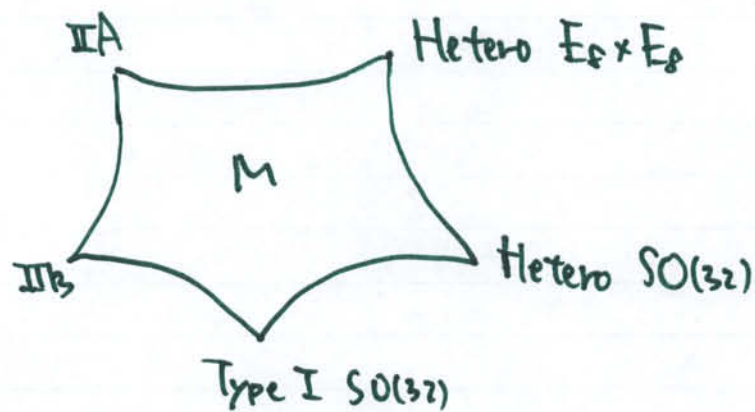 IIA
Hetero E8 × E8
M
IIB
Hetero SO(32)
Type I SO(32)